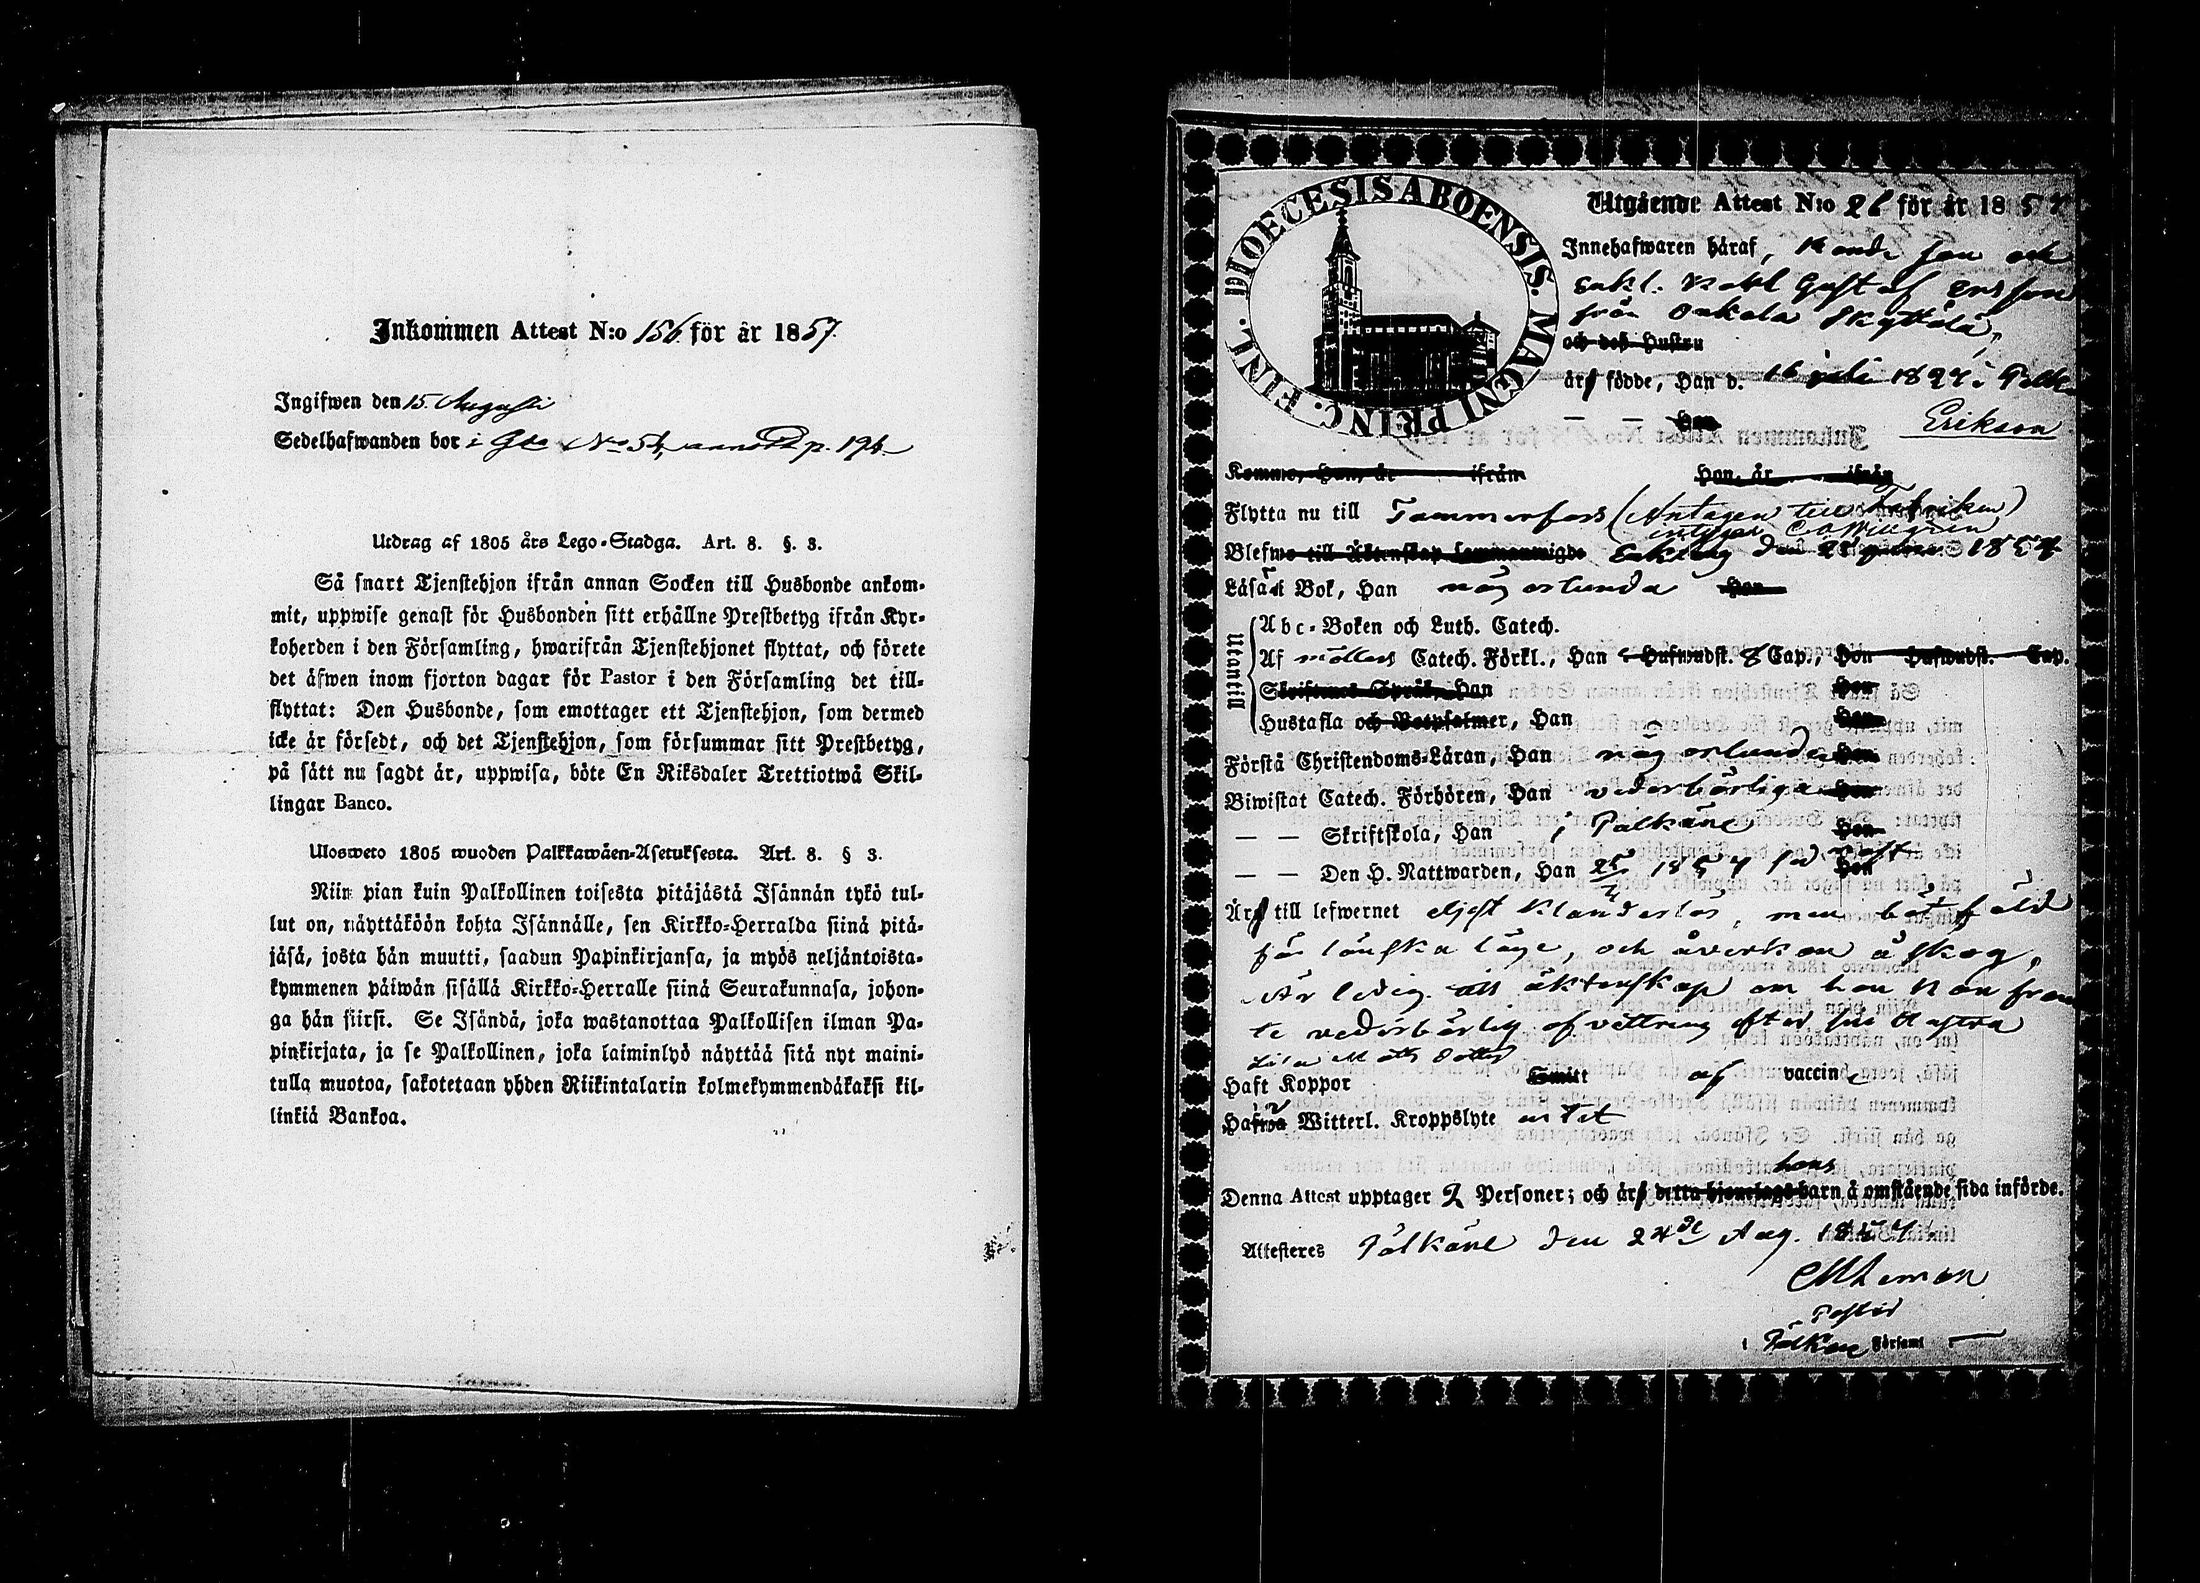 Inkommen Attest N:o 156 för år 1857.
Ingifwen den 15. Augusti
Sedelhafwanden bor i No 54, p. 196
Utdrag af 1805 års Lego-Stadga. Art. 8. §. 3.
Så snart Tjenstehjon ifrån annan Socken till Husbonde ankom-
mit, uppwise genast för Husbonden sitt erhållne Prestbetyg ifrån Kyr-
koherden i den Församling, hwarifrån Tjenstehjonet flyttat, och förete
det äfwen inom fjorton dagar för Pastor i den Församling det till-
flyttat: Den Husbonde, som emottager ett Tjenstehjon, som dermed
icke är försedt, och det Tjenstehjon, som försummar sitt Prestbetyg,
på sätt nu sagdt är, uppwisa, böte En Riksdaler Trettiotwå Skil-
lingar Banco.
Ulosweto 1805 wuoden Palkkawäen-Asetuksesta. Art. 8. § 3.
Niin pian kuin Palkollinen toisesta pitäjästä Isännän tykö tul-
lut on, näyttäköön kohta Isännälle, sen Kirkko-Herralda siinä pitä-
jäsä, josta hän muutti, saadun Papinkirjansa, ja myös neljäntoista-
kymmenen päiwän sisällä Kirkko-Herralle siinä Seurakunnasa, johon-
ga hän siirsi. Se Isändä, joka wastanottaa Palkollisen ilman Pa-
pinkirjata, ja se Palkollinen, joka laiminlyö näyttää sitä nyt maini-
tulla muotoa, sakotetaan yhden Riikintalarin kolmekymmendäkaksi kil-
linkiä Bankoa.
DIOECESIS ABOENSIS. MAGNI PRINC. FINL.
Utgående Attest N:o 26 för år 1857
Innehafwaren häraf, Bonde son och
Gustaf Ersson
från Onkala
och deß Hustru
är födde, Han d. 16 1827 i
Hon
Erikson
Komme, Han, år ifrån Hon, år ifrån
Flytta nu till Tammerfors (Antagen till Fabriken)
intygar
Blefwo till Äktenskap sammanwigde Enkling den 1857
Läsa i Bok, Han någorlunda Hon
Utantill
Abc-Boken och Luth. Catech.
Af möllers Catech. Förkl., Han Hufwudst. 8 Cap., Hon Hufwudst. Cap.
Skriftenes Språk, Han Hon
Hustafla och Botpsalmer, Han Hon
Förstå Christendoms-Läran, Han någorlunda Hon
Biwistat Catech. Förhören, Han vederbörliga Hon
— — Skriftskola, Han i Pälkäne Hon
— — Den H. Nattwarden, Han 1857 Hon
Är till lefwernet eljest klanderlös, men bötfäld
för lönska läge, och åverkan å skog,
Är ledig till äktenskap om han kan fram
te vederbörlig afvittring efter sin Hustru
Matts dotter
Haft Koppor Smitt af vaccine
Hafwa Witterl. Kroppslyte intet
hans
Denna Attest upptager 2 Personer; och är detta hjonelags barn å omstående sida införde.
Attesteres Pälkäne den 24de Aug. 1857
Pastor
i Pälkäne Församl